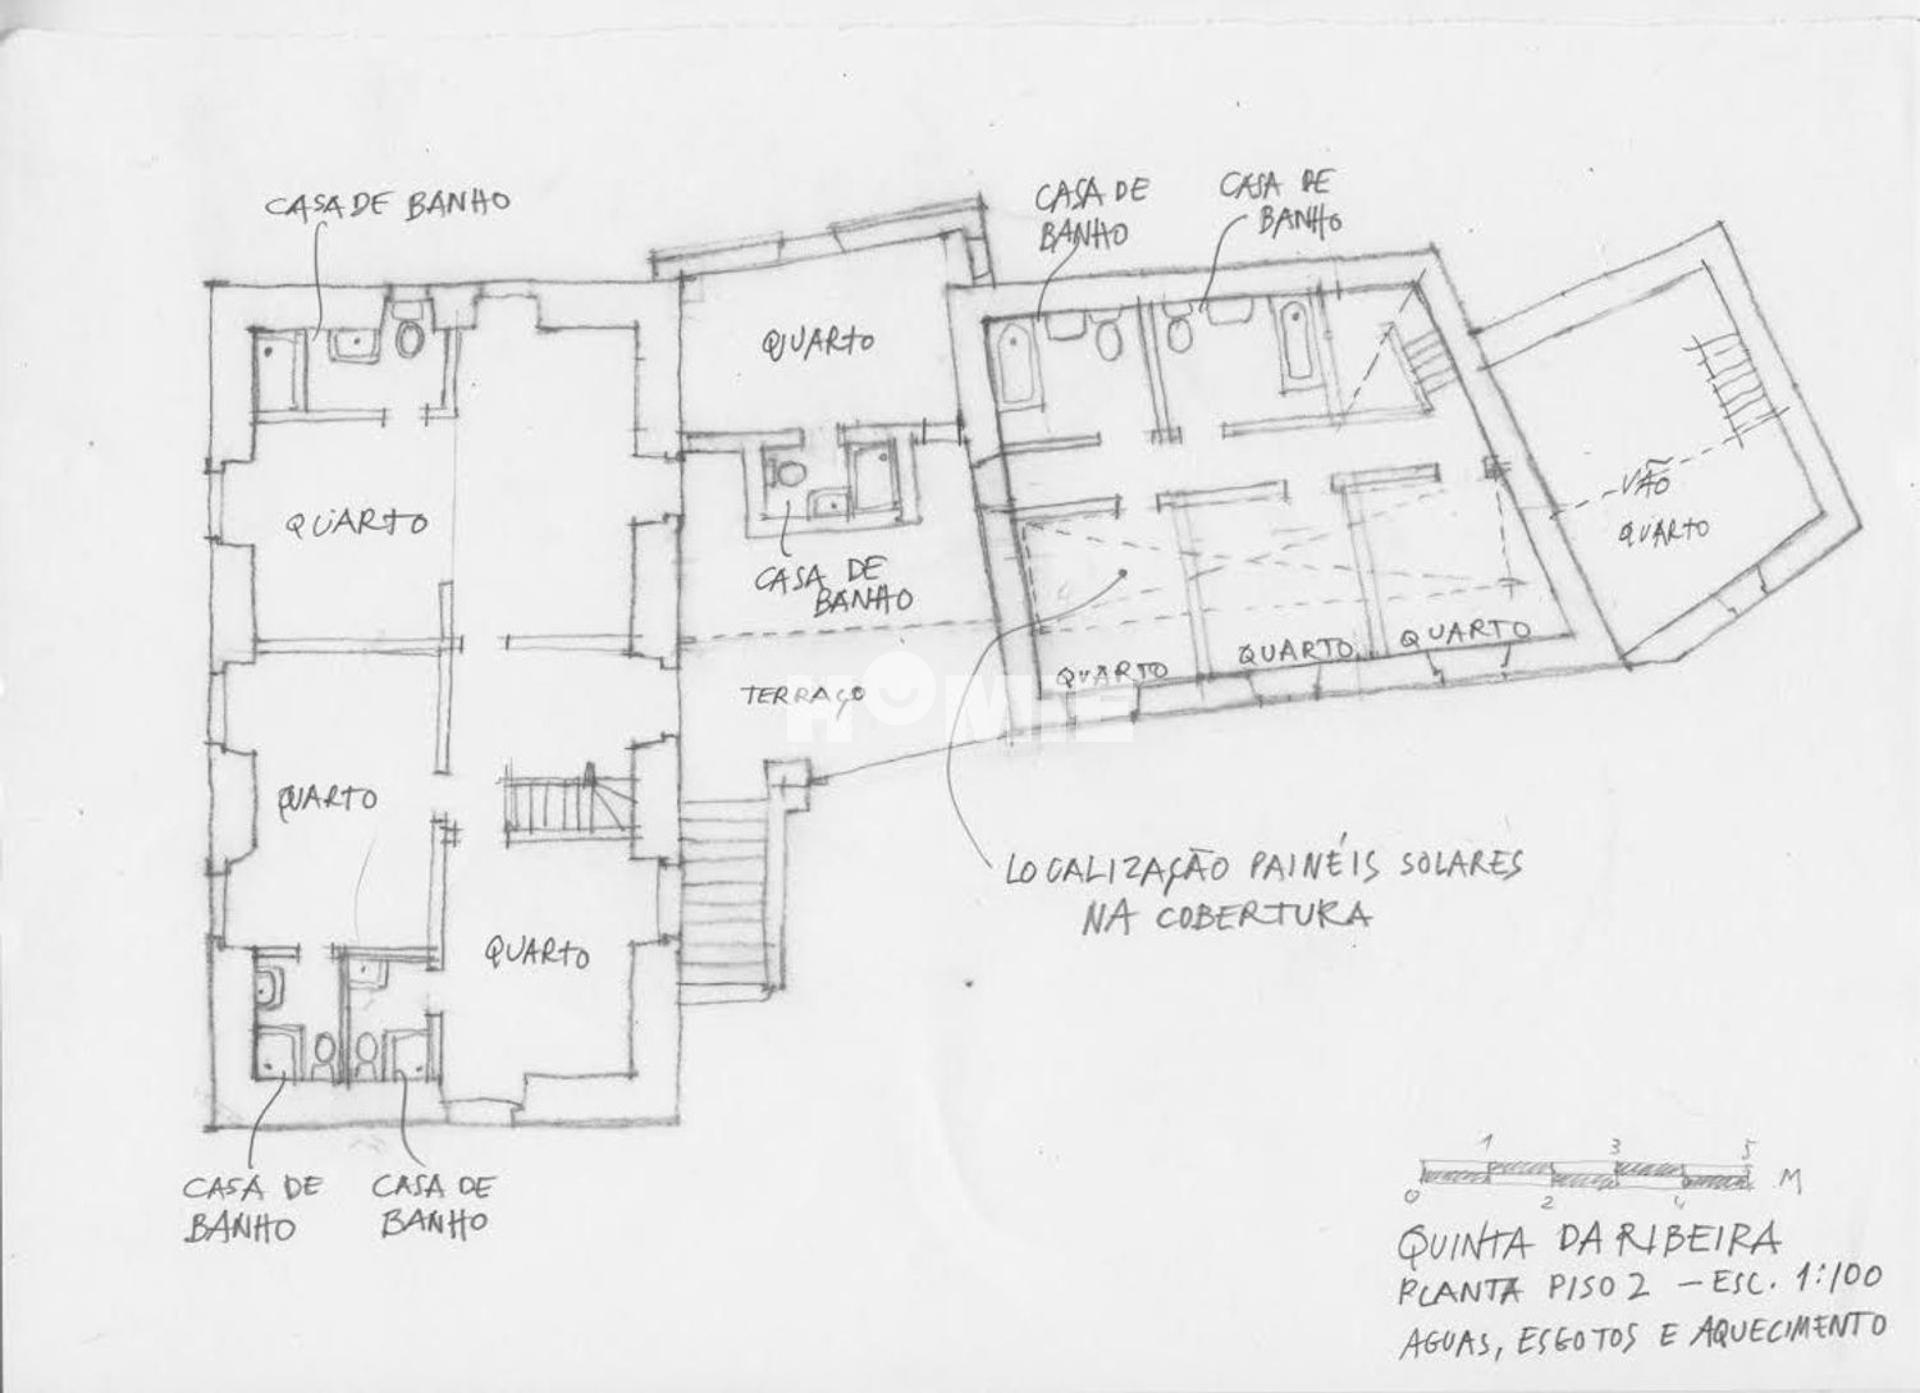 CASA DE BANHO
CASA DE
BANHO
CASA DE
BANHO
QUARTO
QUARTO
VÃO
QUARTO
CASA DE
BANHO
QUARTO
QUARTO
QUARTO
TERRAÇO
HOMiE
QUARTO
QUARTO
LOCALIZAÇÃO PAINÉIS SOLARES
NA COBERTURA
QUARTO
CASA DE
BANHO
CASA DE
BANHO
1 3 5
0 2 4 M
QUINTA DA RIBEIRA
PLANTA PISO 2 - ESC. 1:100
AGUAS, ESGOTOS E AQUECIMENTO